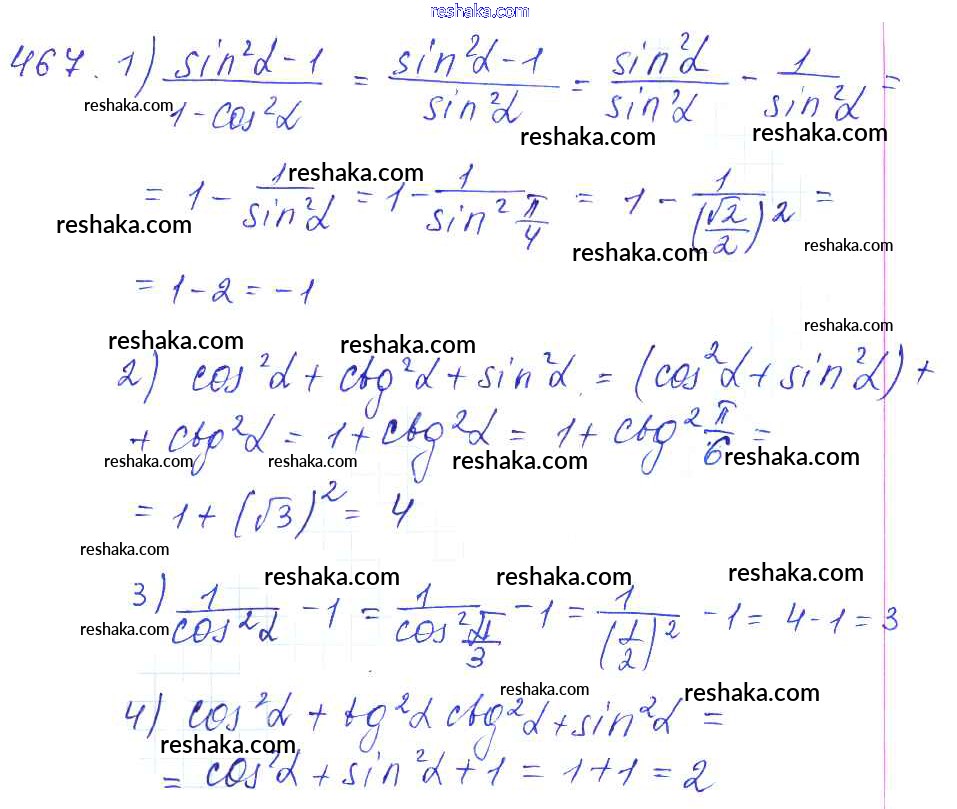 reshaka.com
467. 1) (sin²α - 1)/(1 - cos²α) = (sin²α - 1)/(sin²α) = sin²α/sin²α - 1/sin²α =
reshaka.com reshaka.com reshaka.com
= 1 - 1/sin²α = 1 - 1/(sin² π/4) = 1 - 1/(√2/2)² =
reshaka.com reshaka.com reshaka.com reshaka.com
= 1 - 2 = -1
reshaka.com
reshaka.com reshaka.com
2) cos²α + ctg²α + sin²α = (cos²α + sin²α) +
+ ctg²α = 1 + ctg²α = 1 + ctg² π/6 =
reshaka.com reshaka.com reshaka.com reshaka.com
= 1 + (√3)² = 4
reshaka.com
reshaka.com reshaka.com reshaka.com
3) 1/cos²α - 1 = 1/(cos² π/3) - 1 = 1/(1/2)² - 1 = 4 - 1 = 3
reshaka.com
reshaka.com reshaka.com
4) cos²α + tg²α ctg²α + sin²α =
reshaka.com
= cos²α + sin²α + 1 = 1 + 1 = 2